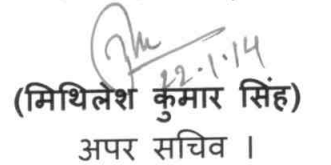 22.1.14
(मिथिलेश कुमार सिंह)
अपर सचिव ।